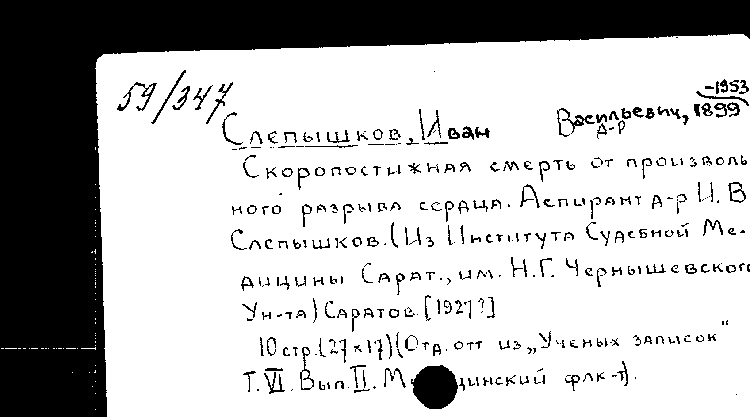 59/347
Слепышков, Иван Васильевич, 1899
-1953
д-р
Скоропостижная смерть от произволь
ного разрыва сердца. Аспирант д-р И. В
Слепышков. (Из Института Судебной Ме-
дицины Сарат., им. Н.Г. Чернышевского
Ун-та) Саратов. [1927?]
10 стр. (27×17) (Отд. отт из „Ученых записок"
Т. VI. Вып. II. М цинский флк-т).